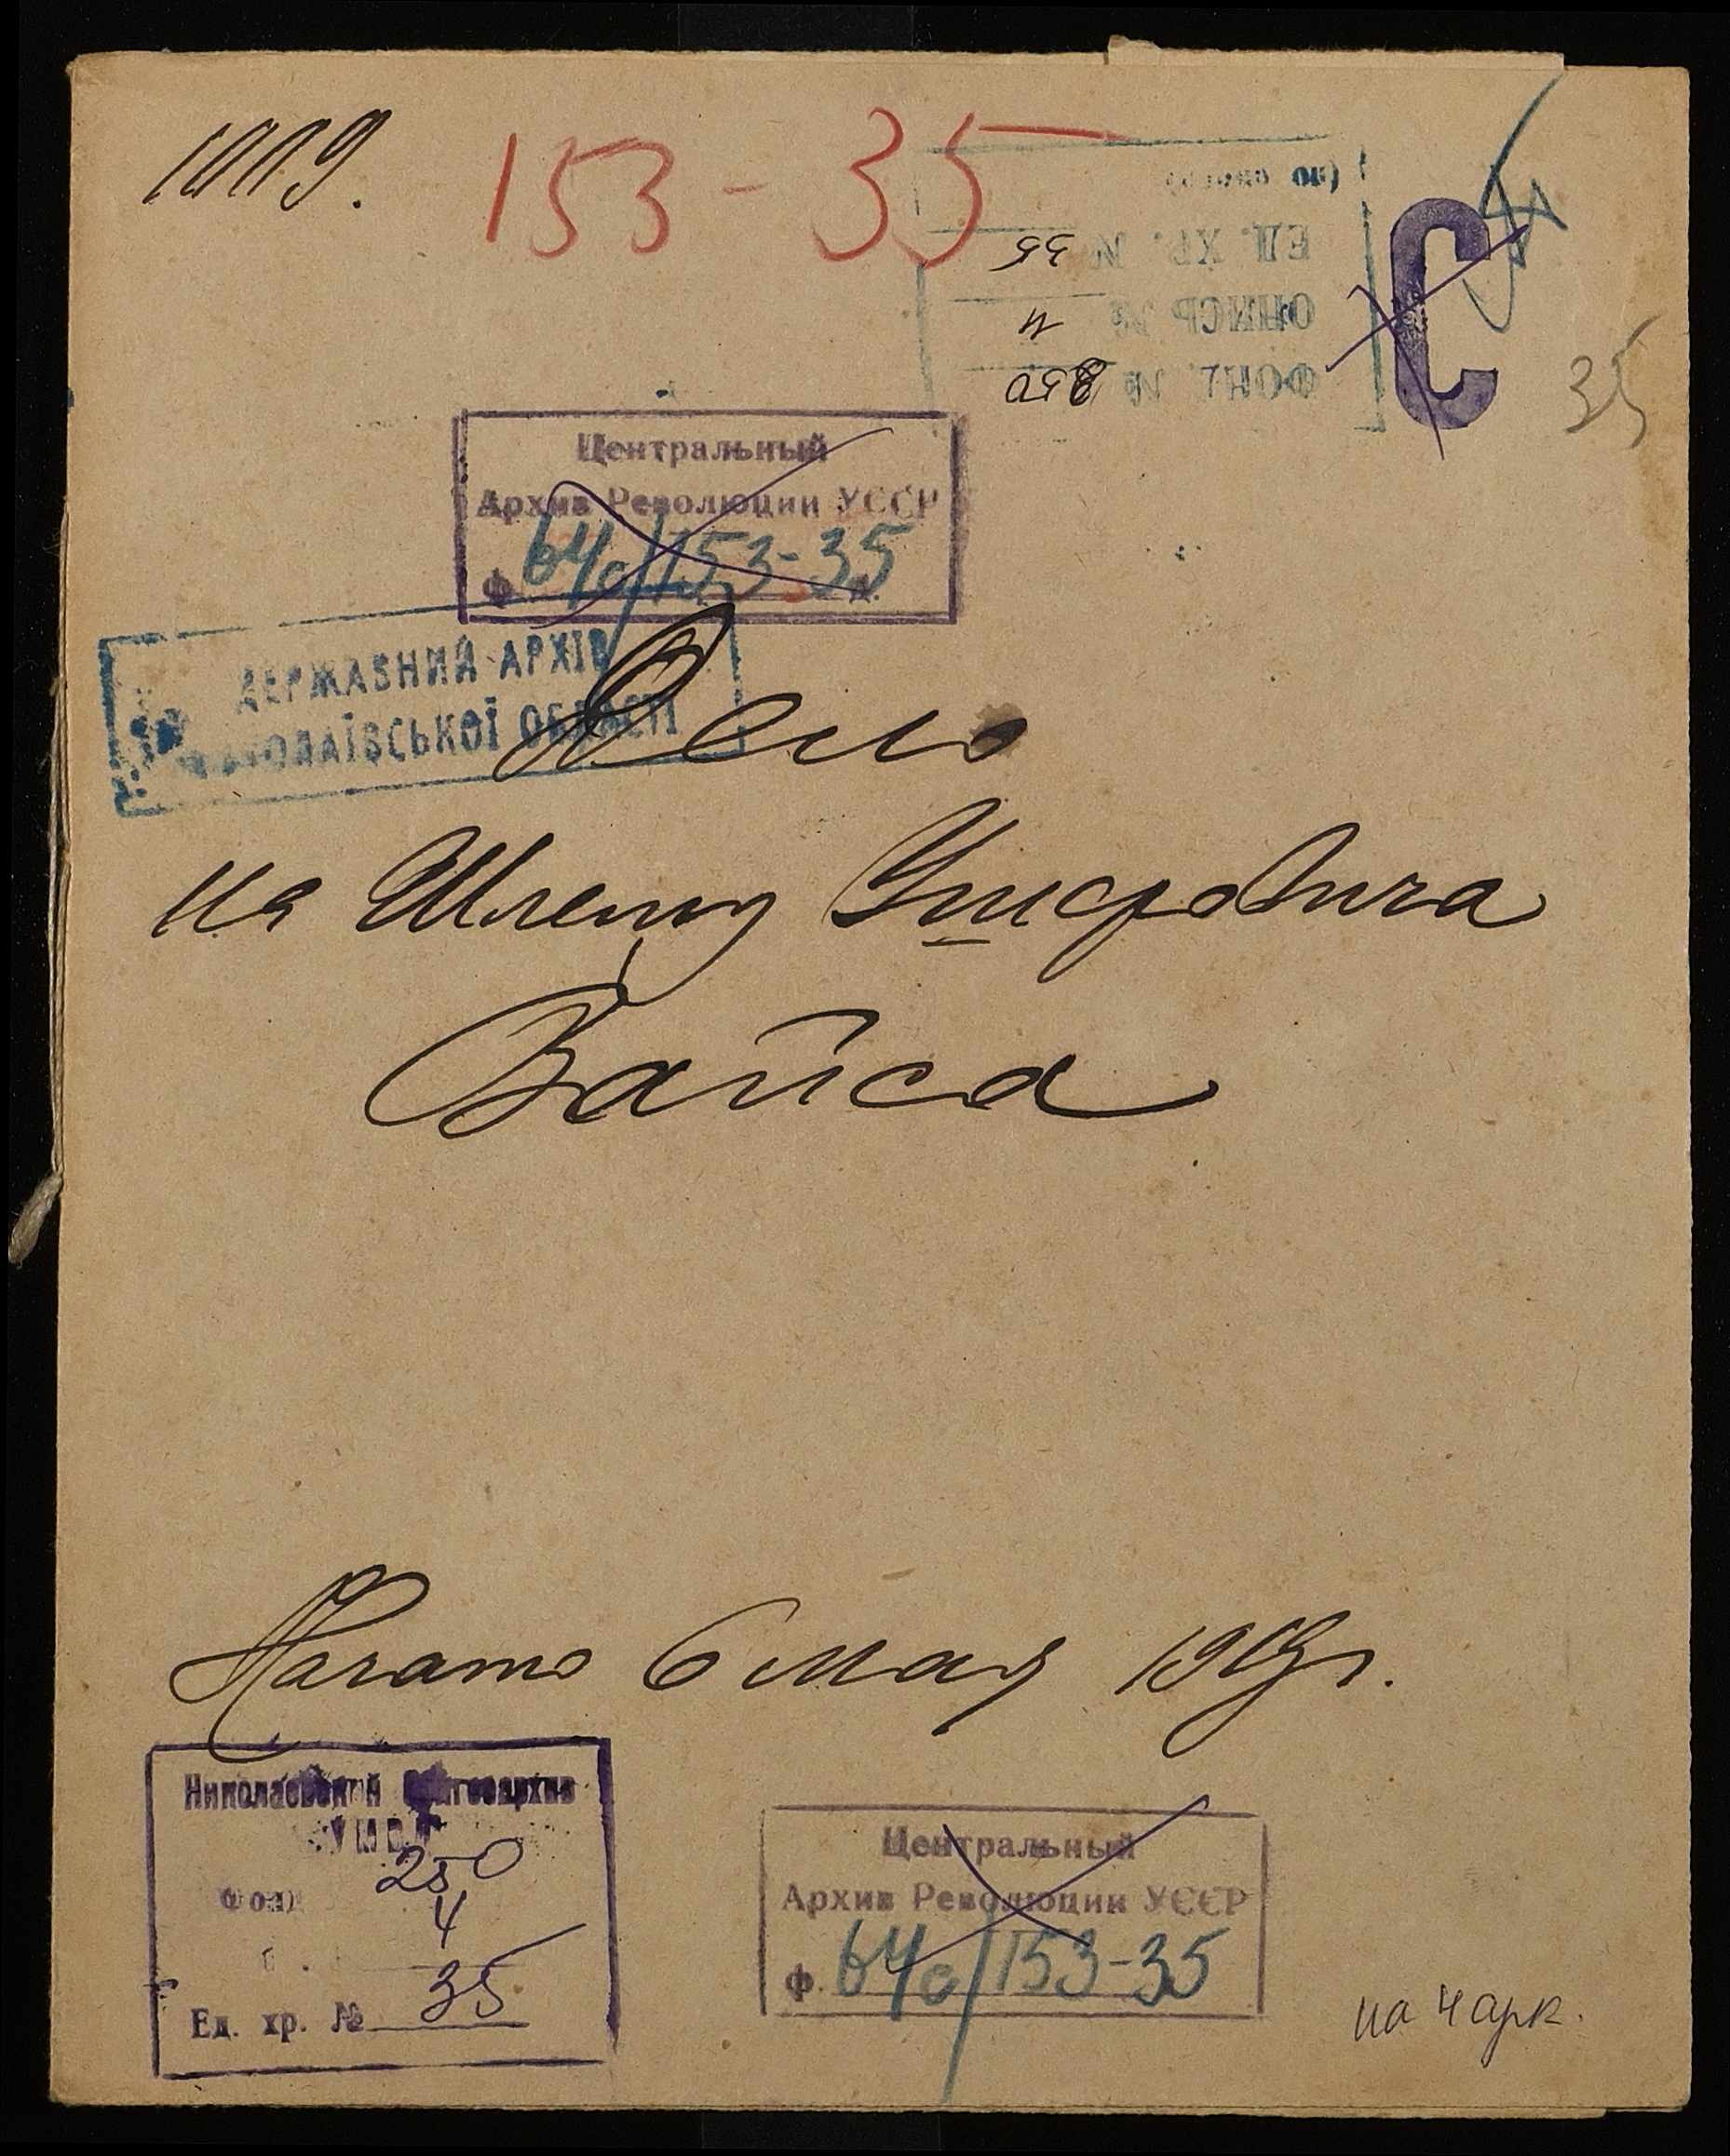 153-35
(по описи)
ЕД. ХР. № 35
ОПИСЬ № 4
ФОНД №
С
35
Центральный
Архив Революции УССР
ф. 64с/153-35 д.
ДЕРЖАВНИЙ АРХІВ
МИКОЛАЇВСЬКОЇ ОБЛАСТІ
Дело
на Шлему Ушеровича
Вайса
Начато 6 мая
Николаевский Облгосархив
УМВД
Фонд 250
4
Ед. хр. № 35
Центральный
Архив Революции УССР
ф. 64с/153-35
на 4 арк.